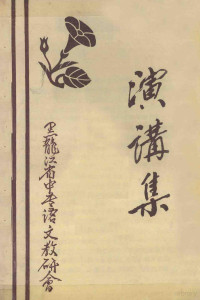 演講集
黑龍江省中學語文教研會